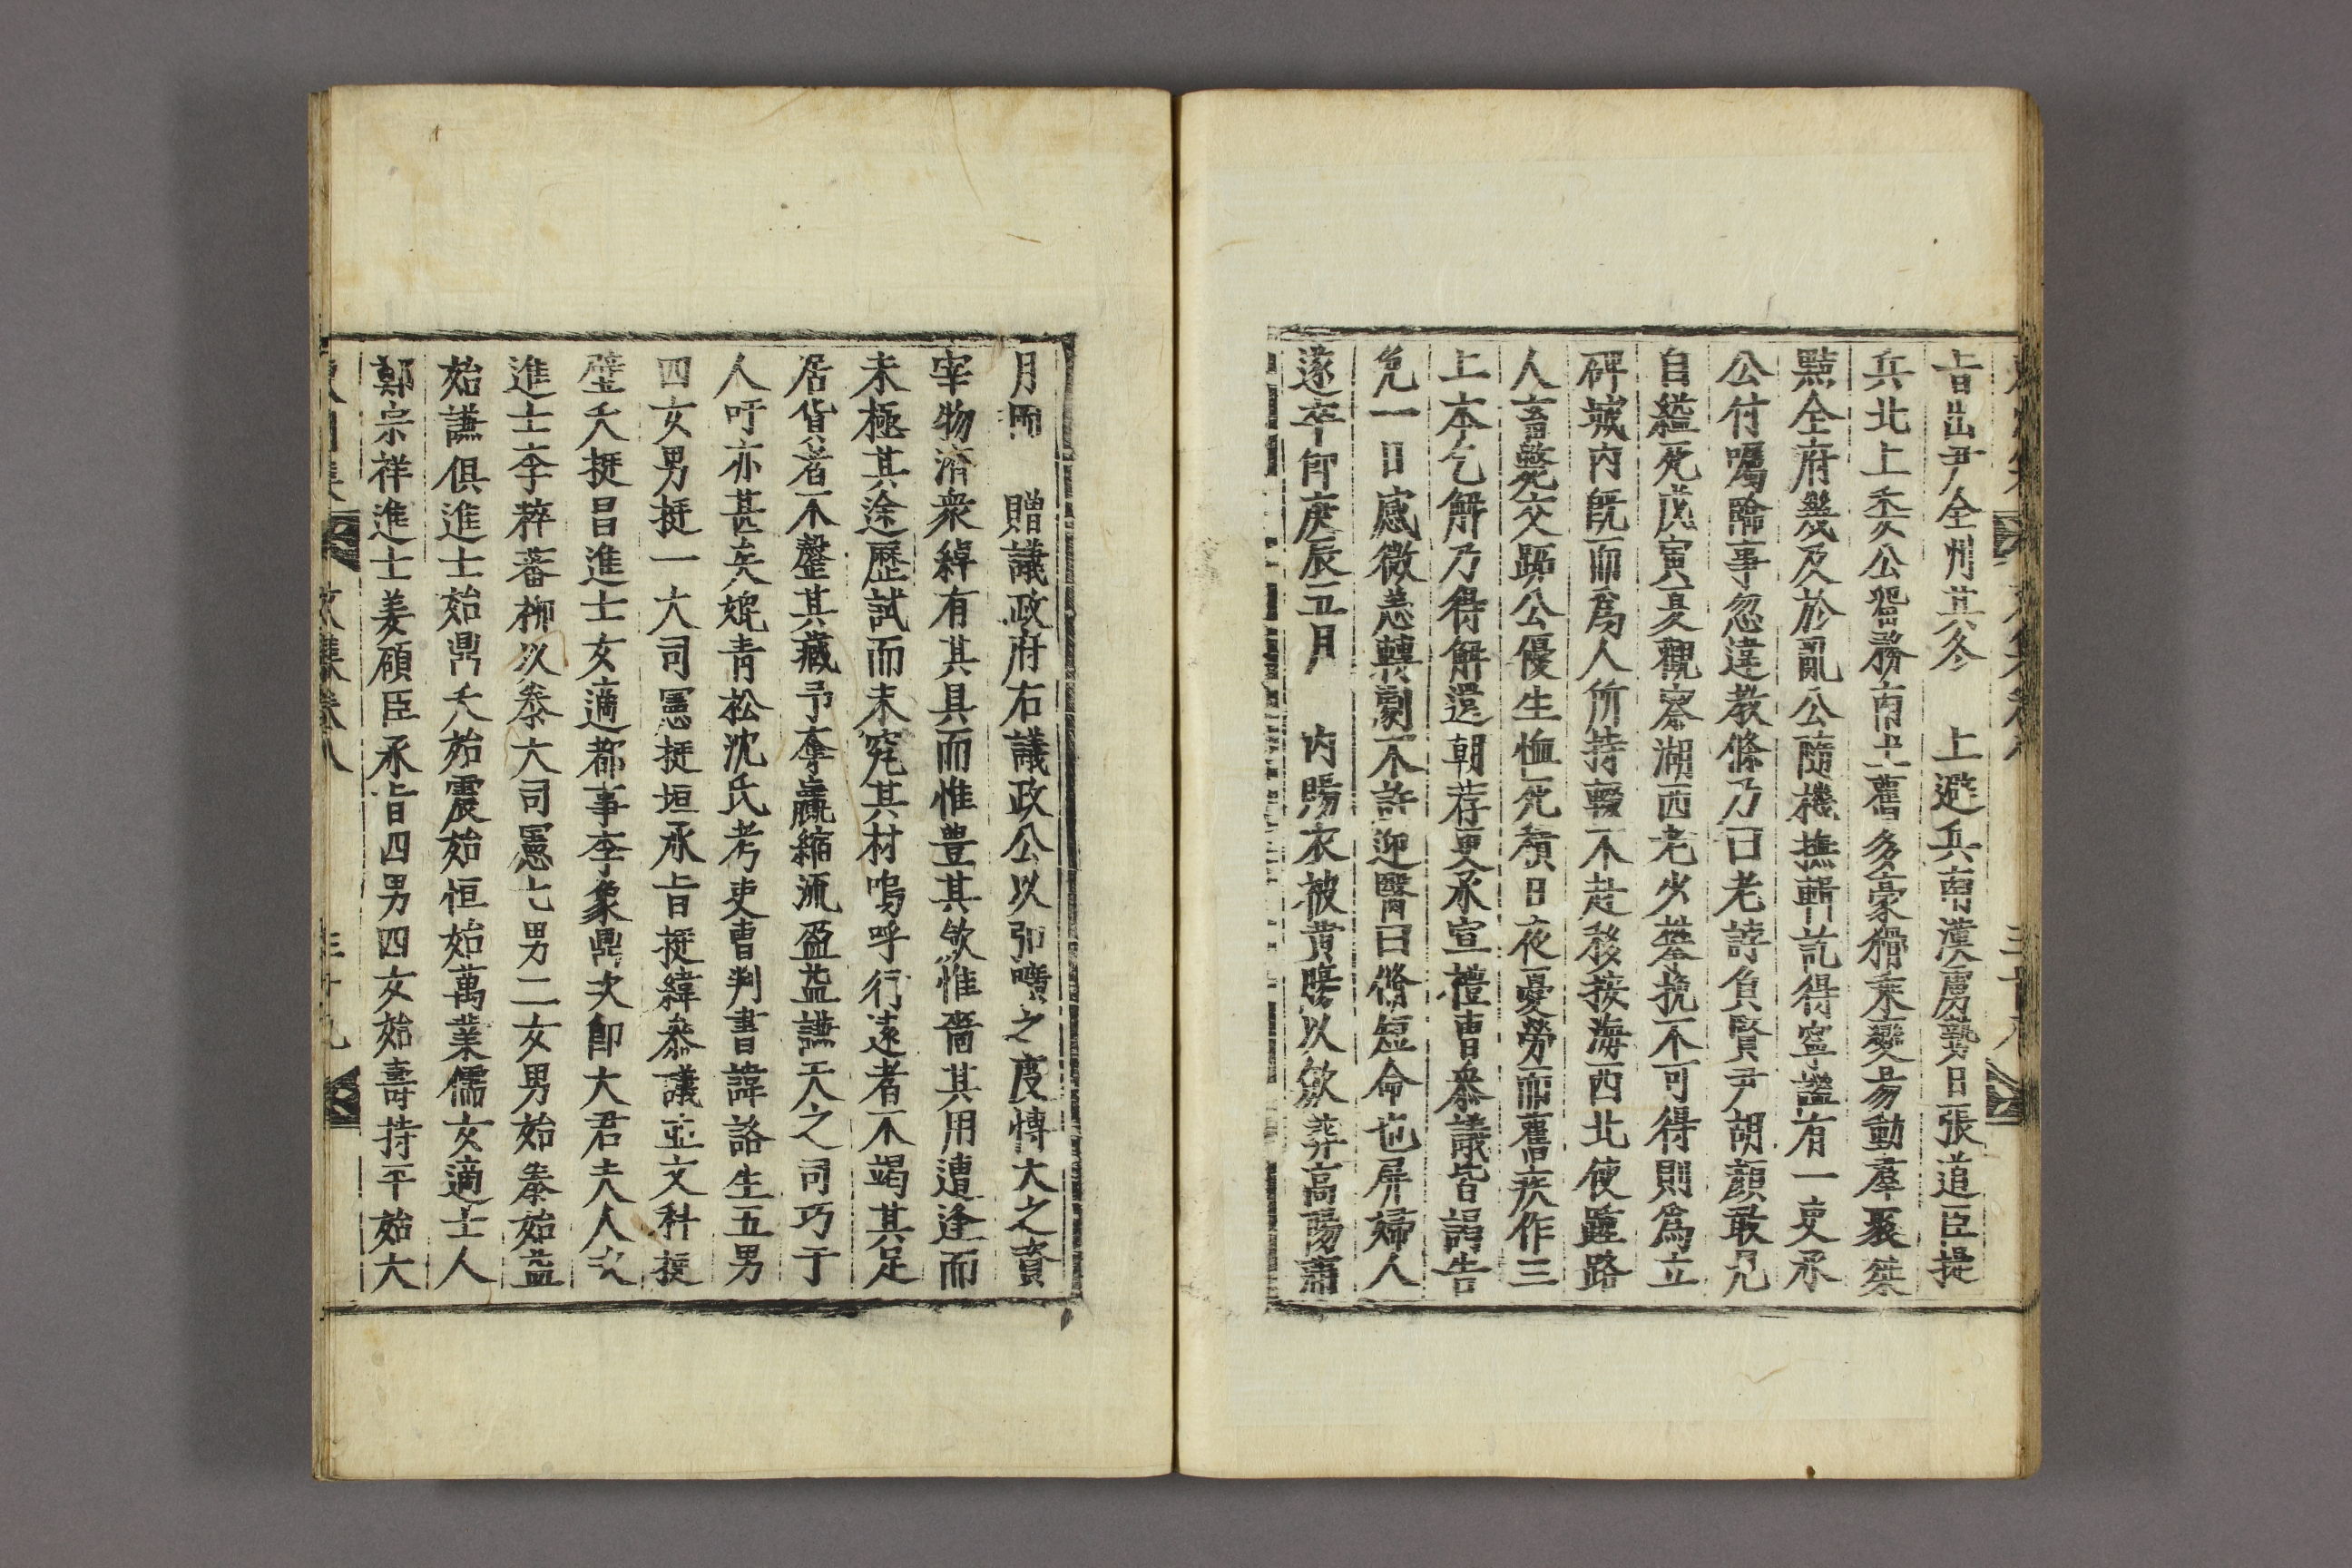 旨出尹全州其冬 上避兵南漢虜勢日張追臣提
兵北上委公留務南土舊多豪猾乘變易動羣聚桀
黠全府幾及於亂公隨機撫輯訖得寧謐有一吏承
公付囑臨事忽違教條乃曰老誖負賢尹胡顔敢見
自縊死戊寅夏觀察湖西老少攀挽不可得則爲立
碑城內旣而爲人所持輟不赴移按海西北使踵路
人畜斃交跡公優生恤死積日夜憂勞而舊疾作三
上本乞解乃得解還朝荐更承宣禮曹參議皆謁告
免一日感微恙轉劇不許迎醫曰脩短命也屛婦人
遂卒卽庚辰五月 內賜衣被賁賵以斂葬高陽肅
月面 贈議政府右議政公以弘曠之度愽大之資
宰物濟衆綽有其具而惟豊其歛惟嗇其用遭逢而
未極其途歷試而未究其材嗚呼行遠者不竭其足
居貨者不罄其藏予奪贏縮流盈益謙天之司巧于
人吁亦甚矣媲靑松沈氏考吏曹判書諱詻生五男
四女男挺一大司憲挺垣承旨挺緯叅議並文科挺
璧夭挺昌進士女適都事李象鼎次卽大君夫人次
進士李稡蕃柳以叅大司憲七男二女男始泰始益
始謙俱進士始鼎夭始震始恒始萬業儒女適士人
鄭宗祥進士姜碩臣承旨四男四女始壽持平始大
文集卷八